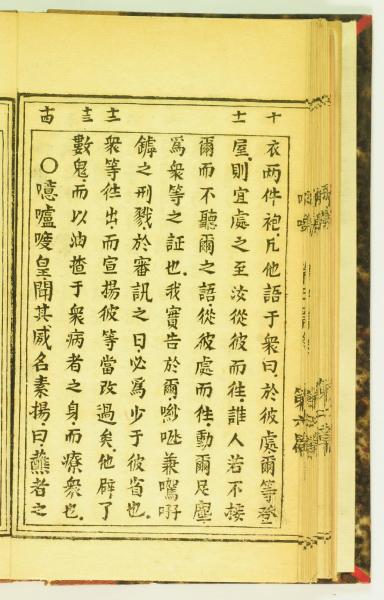 十
衣两件袍.凡他語于衆曰.於彼處.爾等登
十一
屋.則宜處之至汝從彼而徃.誰人若不接
爾而不聽爾之語.從彼處而徃.動爾足塵
爲衆等之証也.我實告於爾.兼
之刑戮.於審訊之日必爲少于彼省也.
十二
衆等徃出.而宣揚彼等當改過矣.他辟了
十三
數鬼.而以油揸于衆病者之身.而療衆也.
十四
〇噫嚧唆皇.聞其威名素揚.曰蘸者之